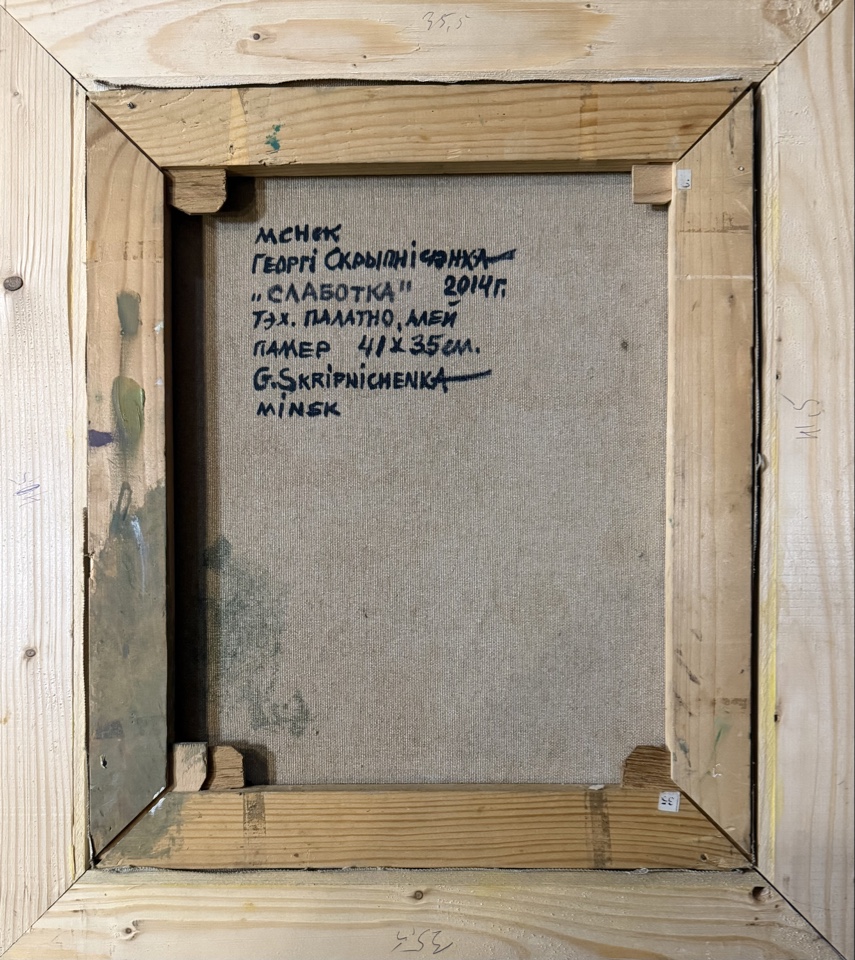 35,5
МСНСК
ГЕОРГІ СКРЫПНІЧЭНКА
„СЛАБОТКА" 2014г.
ТЭХ. ПАЛАТНО, АЛЕЙ
ПАМЕР 41 х 35 см.
G. SKRIPNICHENKA
MINSK
35,5